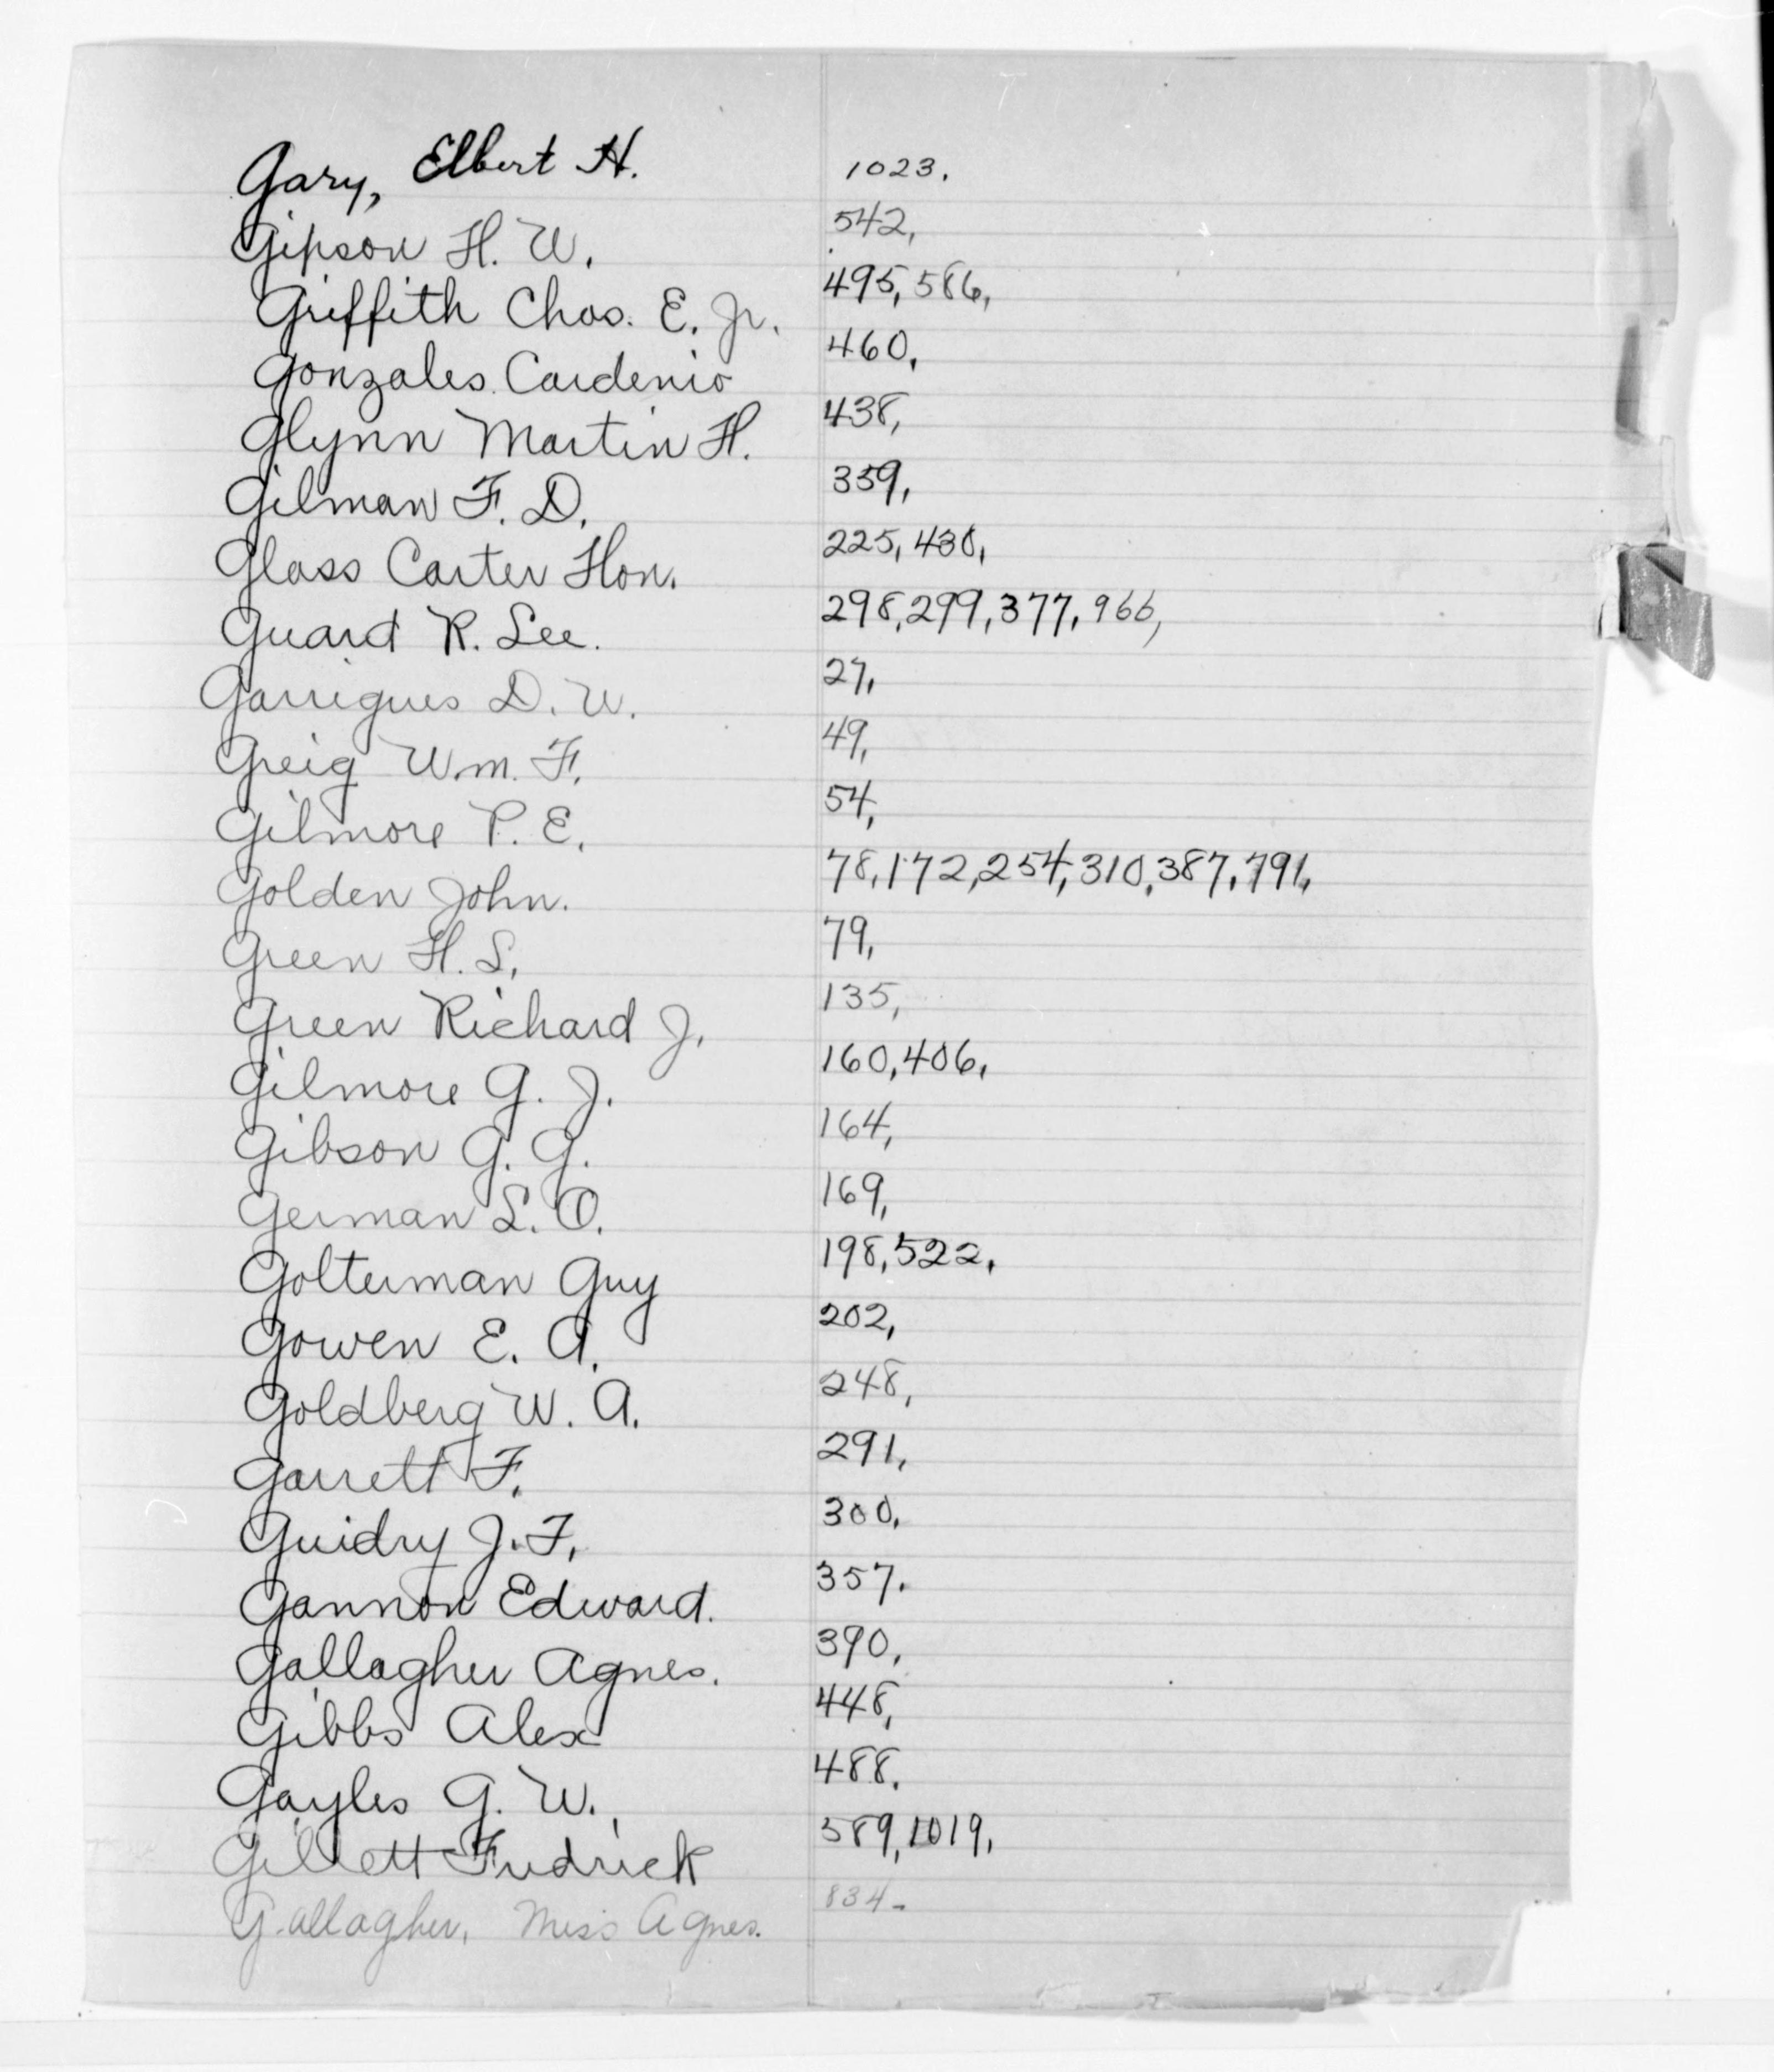 Gary, Elbert H. 1023.
Gipson H. W. 542,
Griffith Chas. E. Jr. 495, 586,
Gonzales Cardenio 460,
Glynn Martin H. 438,
Gilman F. D. 359,
Glass Carter Hon. 225, 430,
Guard R. Lee. 298, 299, 377, 966,
Garrigues D. W. 27,
Greig Wm. F. 49,
Gilmore P. E. 54,
Golden John. 78, 172, 254, 310, 387, 791,
Green H. S. 79,
Green Richard J. 135,
Gilmore G. J. 160, 406,
Gibson G. G. 164,
German L. O. 169,
Golterman Guy 198, 522,
Gowen E. A. 202,
Goldberg W. A. 248,
Garrett F. 291,
Guidry J. F. 300,
Gannon Edward. 357.
Gallagher Agnes. 390,
Gibbs Alex 448,
Gayles G. W. 488.
Gillett Fredrick 589, 1019,
Gallagher, Miss Agnes. 834-